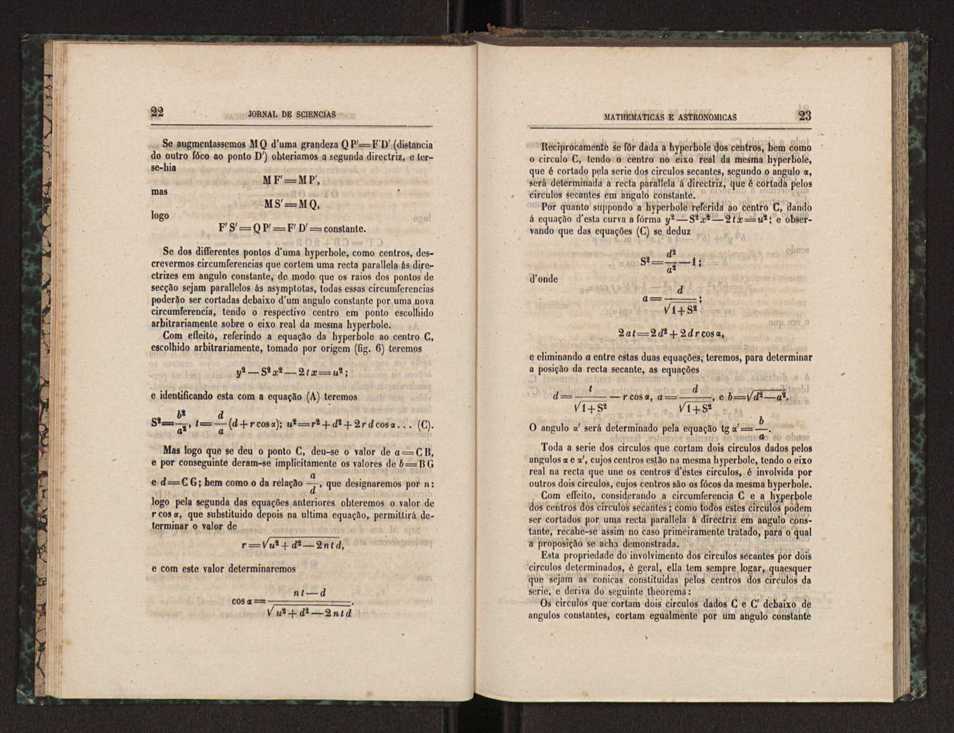 22 JORNAL DE SCIENCIAS
Se augmentassemos M Q d'uma grandeza Q P'=F' D' (distancia
do outro fóco ao ponto D') obteriamos a segunda directriz, e ter-
se-hia
M F'=M P',
mas
M S'=M Q,
logo
F' S'=Q P'=F' D'=constante.
Se dos differentes pontos d'uma hyperbole, como centros, des-
crevermos circumferencias que cortem uma recta parallela ás dire-
ctrizes em angulo constante, de modo que os raios dos pontos de
secção sejam parallelos ás asymptotas, todas essas circumferencias
poderão ser cortadas debaixo d'um angulo constante por uma nova
circumferencia, tendo o respectivo centro em ponto escolhido
arbitrariamente sobre o eixo real da mesma hyperbole.
Com effeito, referindo a equação da hyperbole ao centro C,
escolhido arbitrariamente, tomado por origem (fig. 6) teremos
y²—S²x²—2tx=u²;
e identificando esta com a equação (A) teremos
S²=b²/a², t=d/a(d+r cos α); u²=r²+d²+2rd cos α... (C).
Mas logo que se deu o ponto C, deu-se o valor de a=C B,
e por conseguinte deram-se implicitamente os valores de b=B G
e d=C G; bem como o da relação a/d, que designaremos por n:
logo pela segunda das equações anteriores obteremos o valor de
r cos α, que substituido depois na ultima equação, permittirá de-
terminar o valor de
r=√u²+d²—2ntd,
e com este valor determinaremos
cos α=nt—d/√u²+d²—2ntd.
MATHEMATICAS E ASTRONOMICAS 23
Reciprocamente se fôr dada a hyperbole dos centros, bem como
o circulo C, tendo o centro no eixo real da mesma hyperbole,
que é cortado pela serie dos circulos secantes, segundo o angulo α,
será determinada a recta parallela á directriz, que é cortada pelos
circulos secantes em angulo constante.
Por quanto suppondo a hyperbole referida ao centro C, dando
á equação d'esta curva a fórma y²—S²x²—2tx=u²; e obser-
vando que das equações (C) se deduz
S²=d²/a²—1;
d'onde
a=d/√1+S²;
2at=2d²+2dr cos α,
e eliminando a entre estas duas equações, teremos, para determinar
a posição da recta secante, as equações
d=t/√1+S²—r cos α, a=d/√1+S², e b=√d²—a².
O angulo α' será determinado pela equação tg α'=b/a.
Toda a serie dos circulos que cortam dois circulos dados pelos
angulos α e α', cujos centros estão na mesma hyperbole, tendo o eixo
real na recta que une os centros d'éstes circulos, é involvida por
outros dois circulos, cujos centros são os fócos da mesma hyperbole.
Com effeito, considerando a circumferencia C e a hyperbole
dos centros dos circulos secantes; como todos estes circulos podem
ser cortados por uma recta parallela á directriz em angulo cons-
tante, recahe-se assim no caso primeiramente tratado, para o qual
a proposição se acha demonstrada.
Esta propriedade do involvimento dos circulos secantes por dois
circulos determinados, é geral, ella tem sempre logar, quaesquer
que sejam as conicas constituidas pelos centros dos circulos da
serie, e deriva do seguinte theorema:
Os circulos que cortam dois circulos dados C e C' debaixo de
angulos constantes, cortam egualmente por um angulo constante